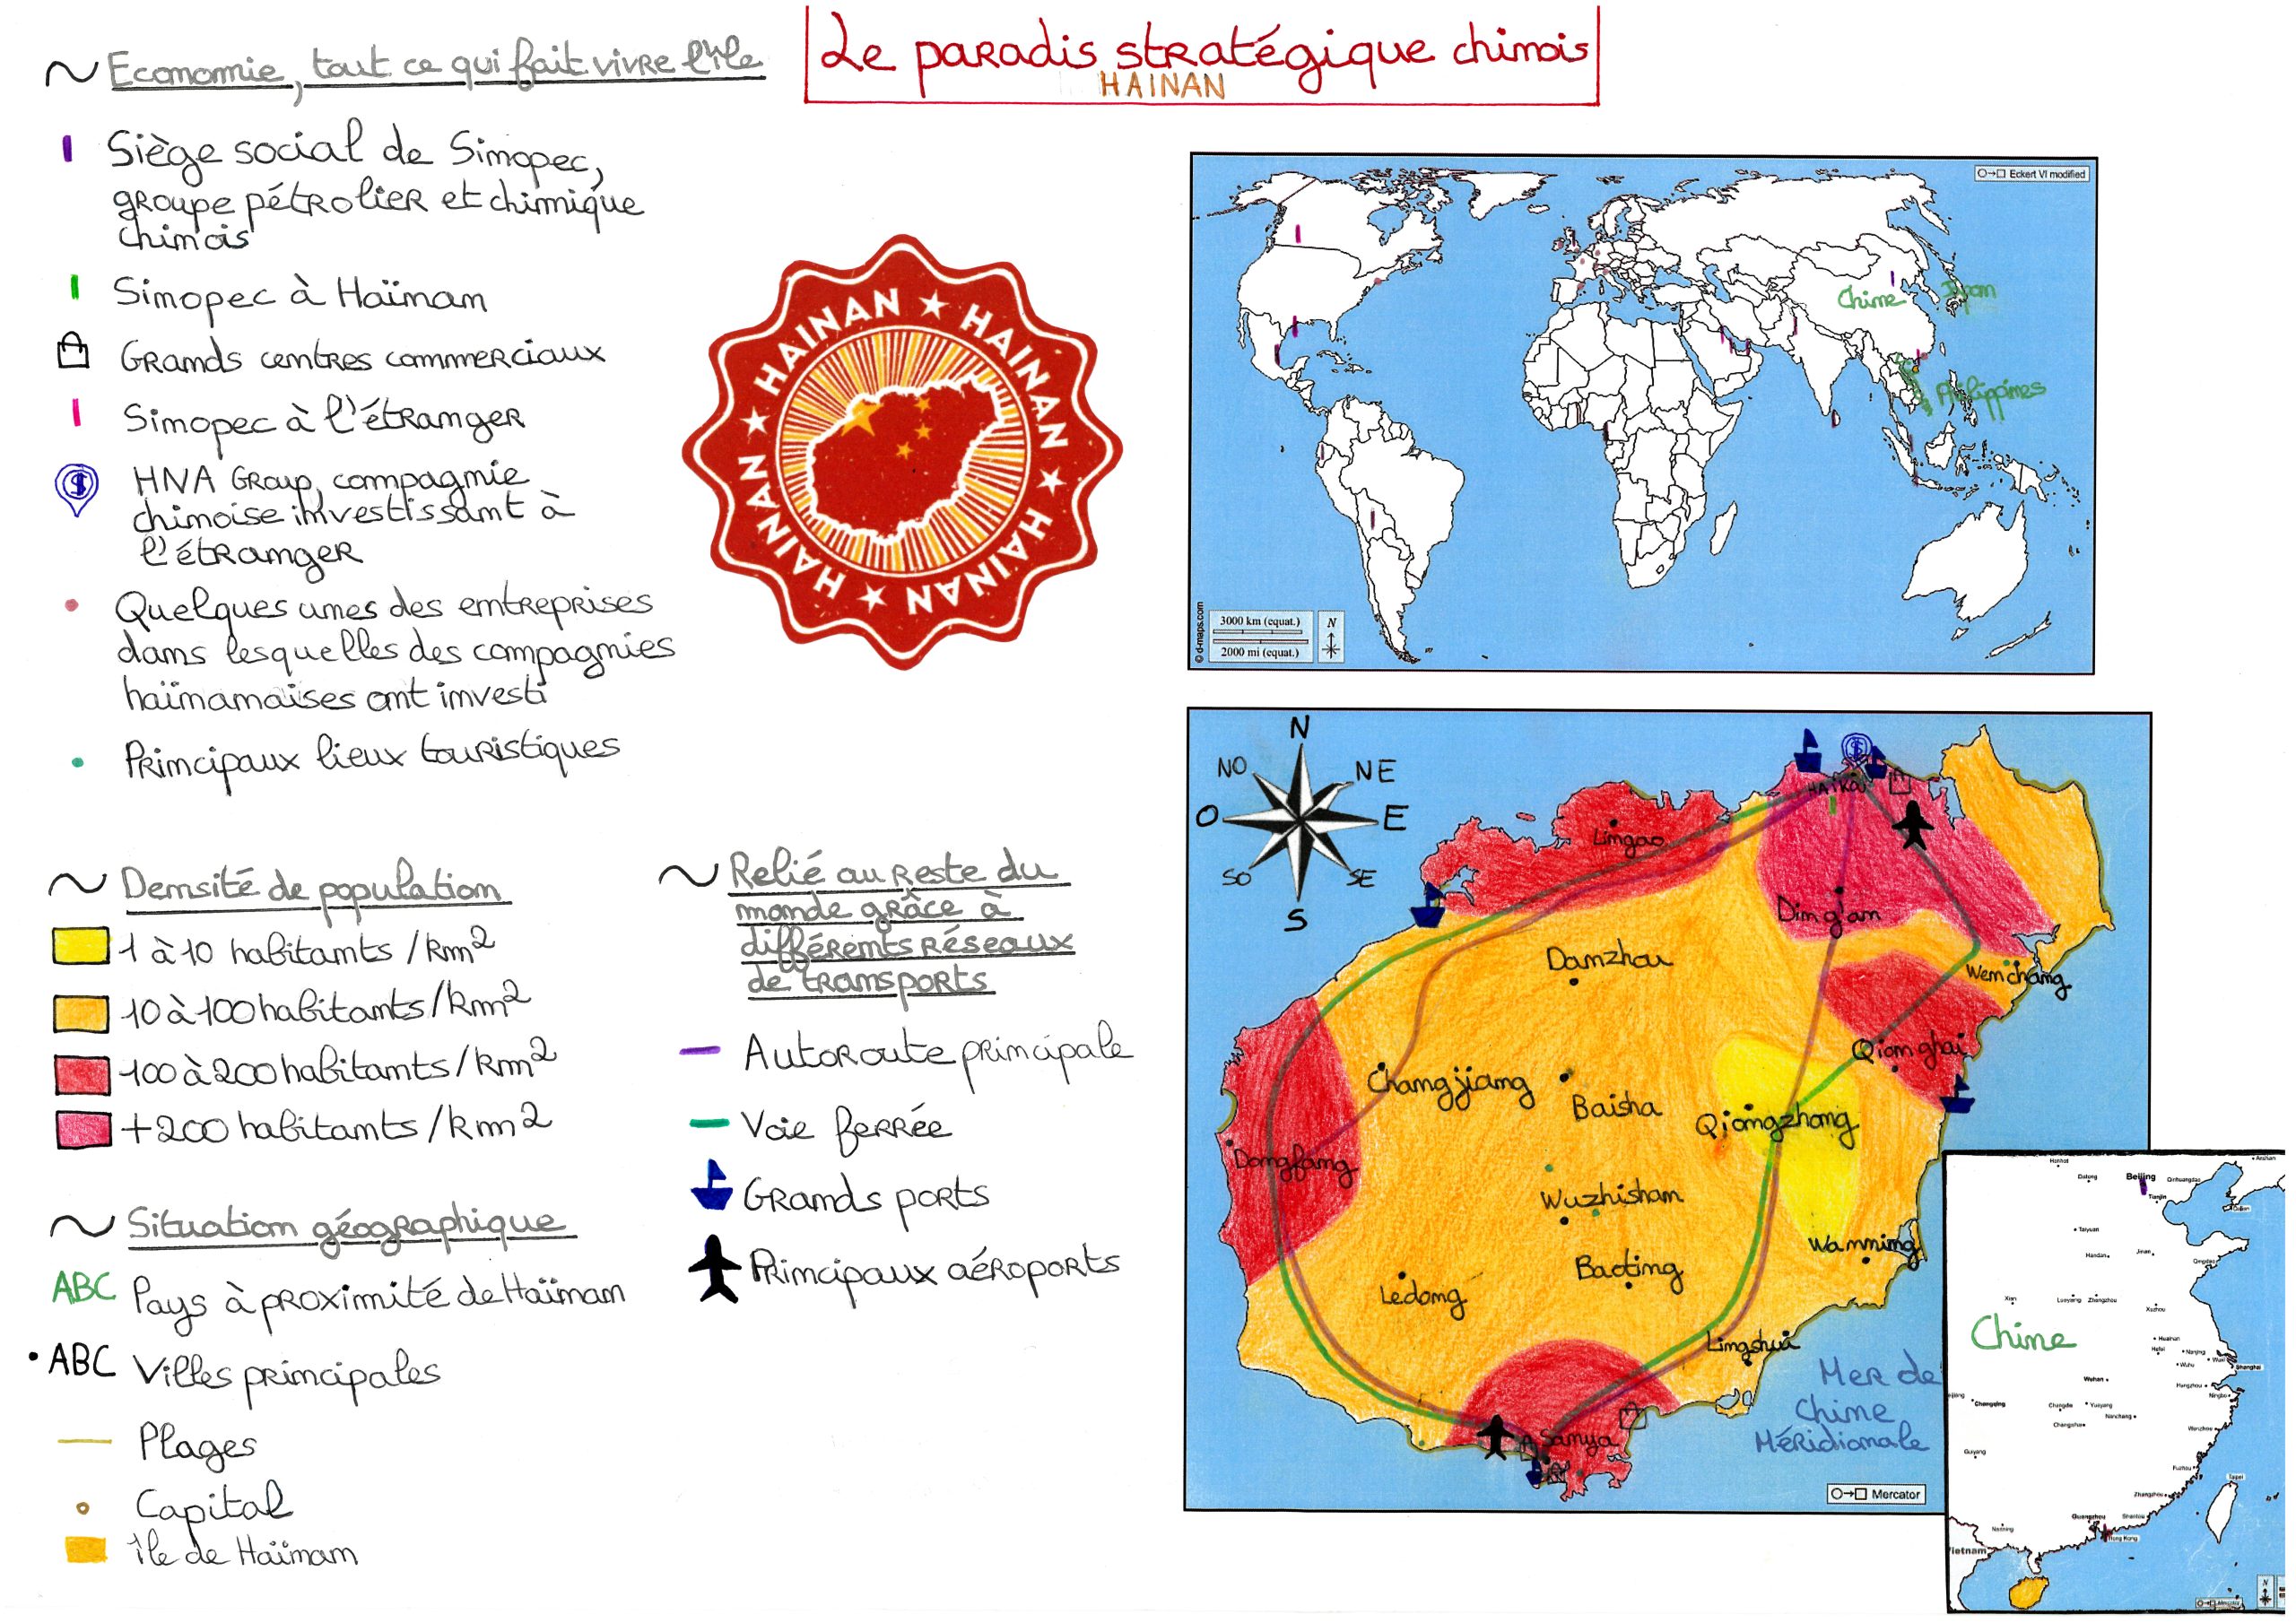 Le paradis stratégique chinois
HAINAN
~ Economie, tout ce qui fait vivre l'île
Siège social de Sinopec,
groupe pétrolier et chimique
chinois
Sinopec à Haïnan
Grands centres commerciaux
Sinopec à l'étranger
HNA Group, compagnie
chinoise investissant à
l'étranger
Quelques unes des entreprises
dans lesquelles des compagnies
haïnanaises ont investi
Principaux lieux touristiques
~ Densité de population
1 à 10 habitants/km²
10 à 100 habitants/km²
100 à 200 habitants/km²
+200 habitants/km²
~ Situation géographique
ABC Pays à proximité de Haïnan
• ABC Villes principales
Plages
Capital
île de Haïnan
~ Relié au reste du
monde grâce à
différents réseaux
de transports
Autoroute principale
Voie ferrée
Grands ports
Principaux aéroports
HAINAN ★ HAINAN ★ HAINAN ★ HAINAN ★ HAINAN ★ HAINAN ★
Eckert VI modified
Chine
Japon
Philippines
3000 km (equat.)
2000 mi (equat.)
N
© d-maps.com
N
NO
NE
O
E
SO
SE
S
HAÏKOU
Lingao
Ding'an
Danzhou
Wenchang
Qionghai
Changjiang
Baisha
Qiongzhong
Dongfang
Wuzhishan
Wanning
Baoting
Ledong
Lingshui
Sanya
Mer de
Chine
Méridionale
Mercator
Beijing
Tianjin
Datong
Taiyuan
Handan
Jinan
Xian
Luoyang
Zhengzhou
Xuzhou
Chine
Hefei
Nanjing
Wuhu
Wuxi
Shanghai
Wuhan
Hangzhou
Ningbo
Chongqing
Changde
Yueyang
Changsha
Nanchang
Wenzhou
Guiyang
Fuzhou
Taipei
Guangzhou
Shantou
Nanning
Hong Kong
Vietnam
N